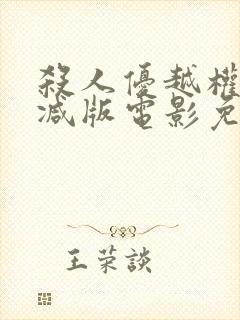 殺人優越權
减版電影免
王荣談